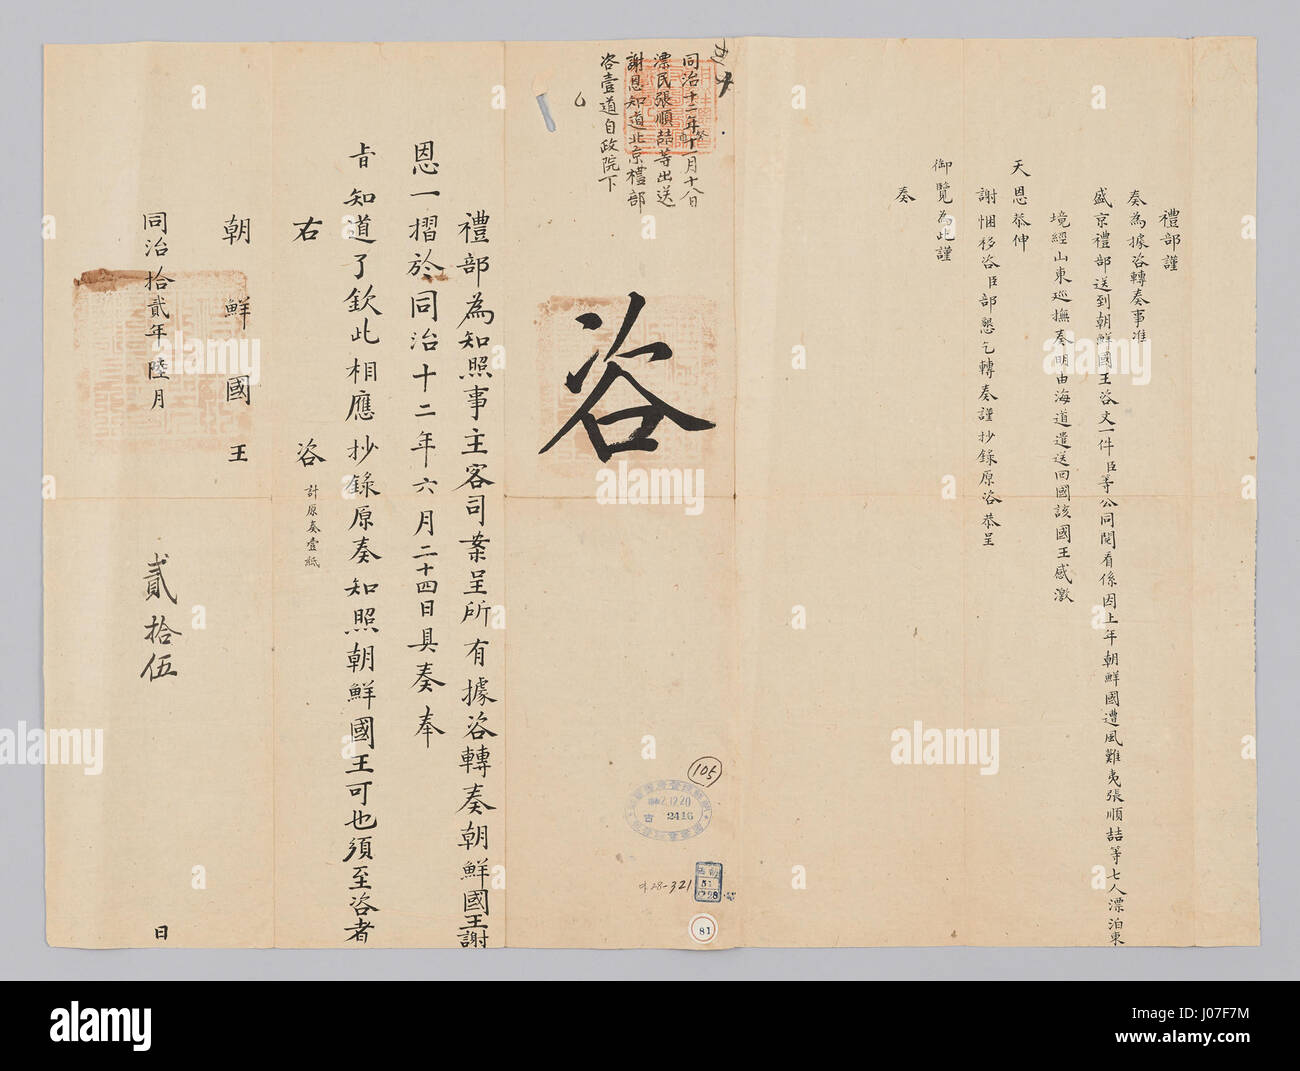 禮部謹
奏為據咨轉奏事准
盛京禮部送到朝鮮國王咨文一件臣等公同閱看係因上年朝鮮國遭風難夷張順喆等七人漂泊東
境經山東巡撫奏明由海道遣送回國該國王感激
天恩恭伸
謝悃移咨臣部懇乞轉奏謹抄錄原咨恭呈
御覽為此謹
奏
同治十二年十一月十八日
漂民張順喆等出送
謝恩知道北京禮部
咨壹道自政院下
咨
105
2.12.20
古 2416
51
228
가28-321
81
禮部為知照事主客司案呈所有據咨轉奏朝鮮國王謝
恩一摺於同治十二年六月二十四日具奏奉
旨知道了欽此相應抄錄原奏知照朝鮮國王可也須至咨者
右 咨 計原奏壹紙
朝鮮國王
同治拾貳年陸月 貳拾伍 日
alamy
Image ID: J07F7M
www.alamy.com